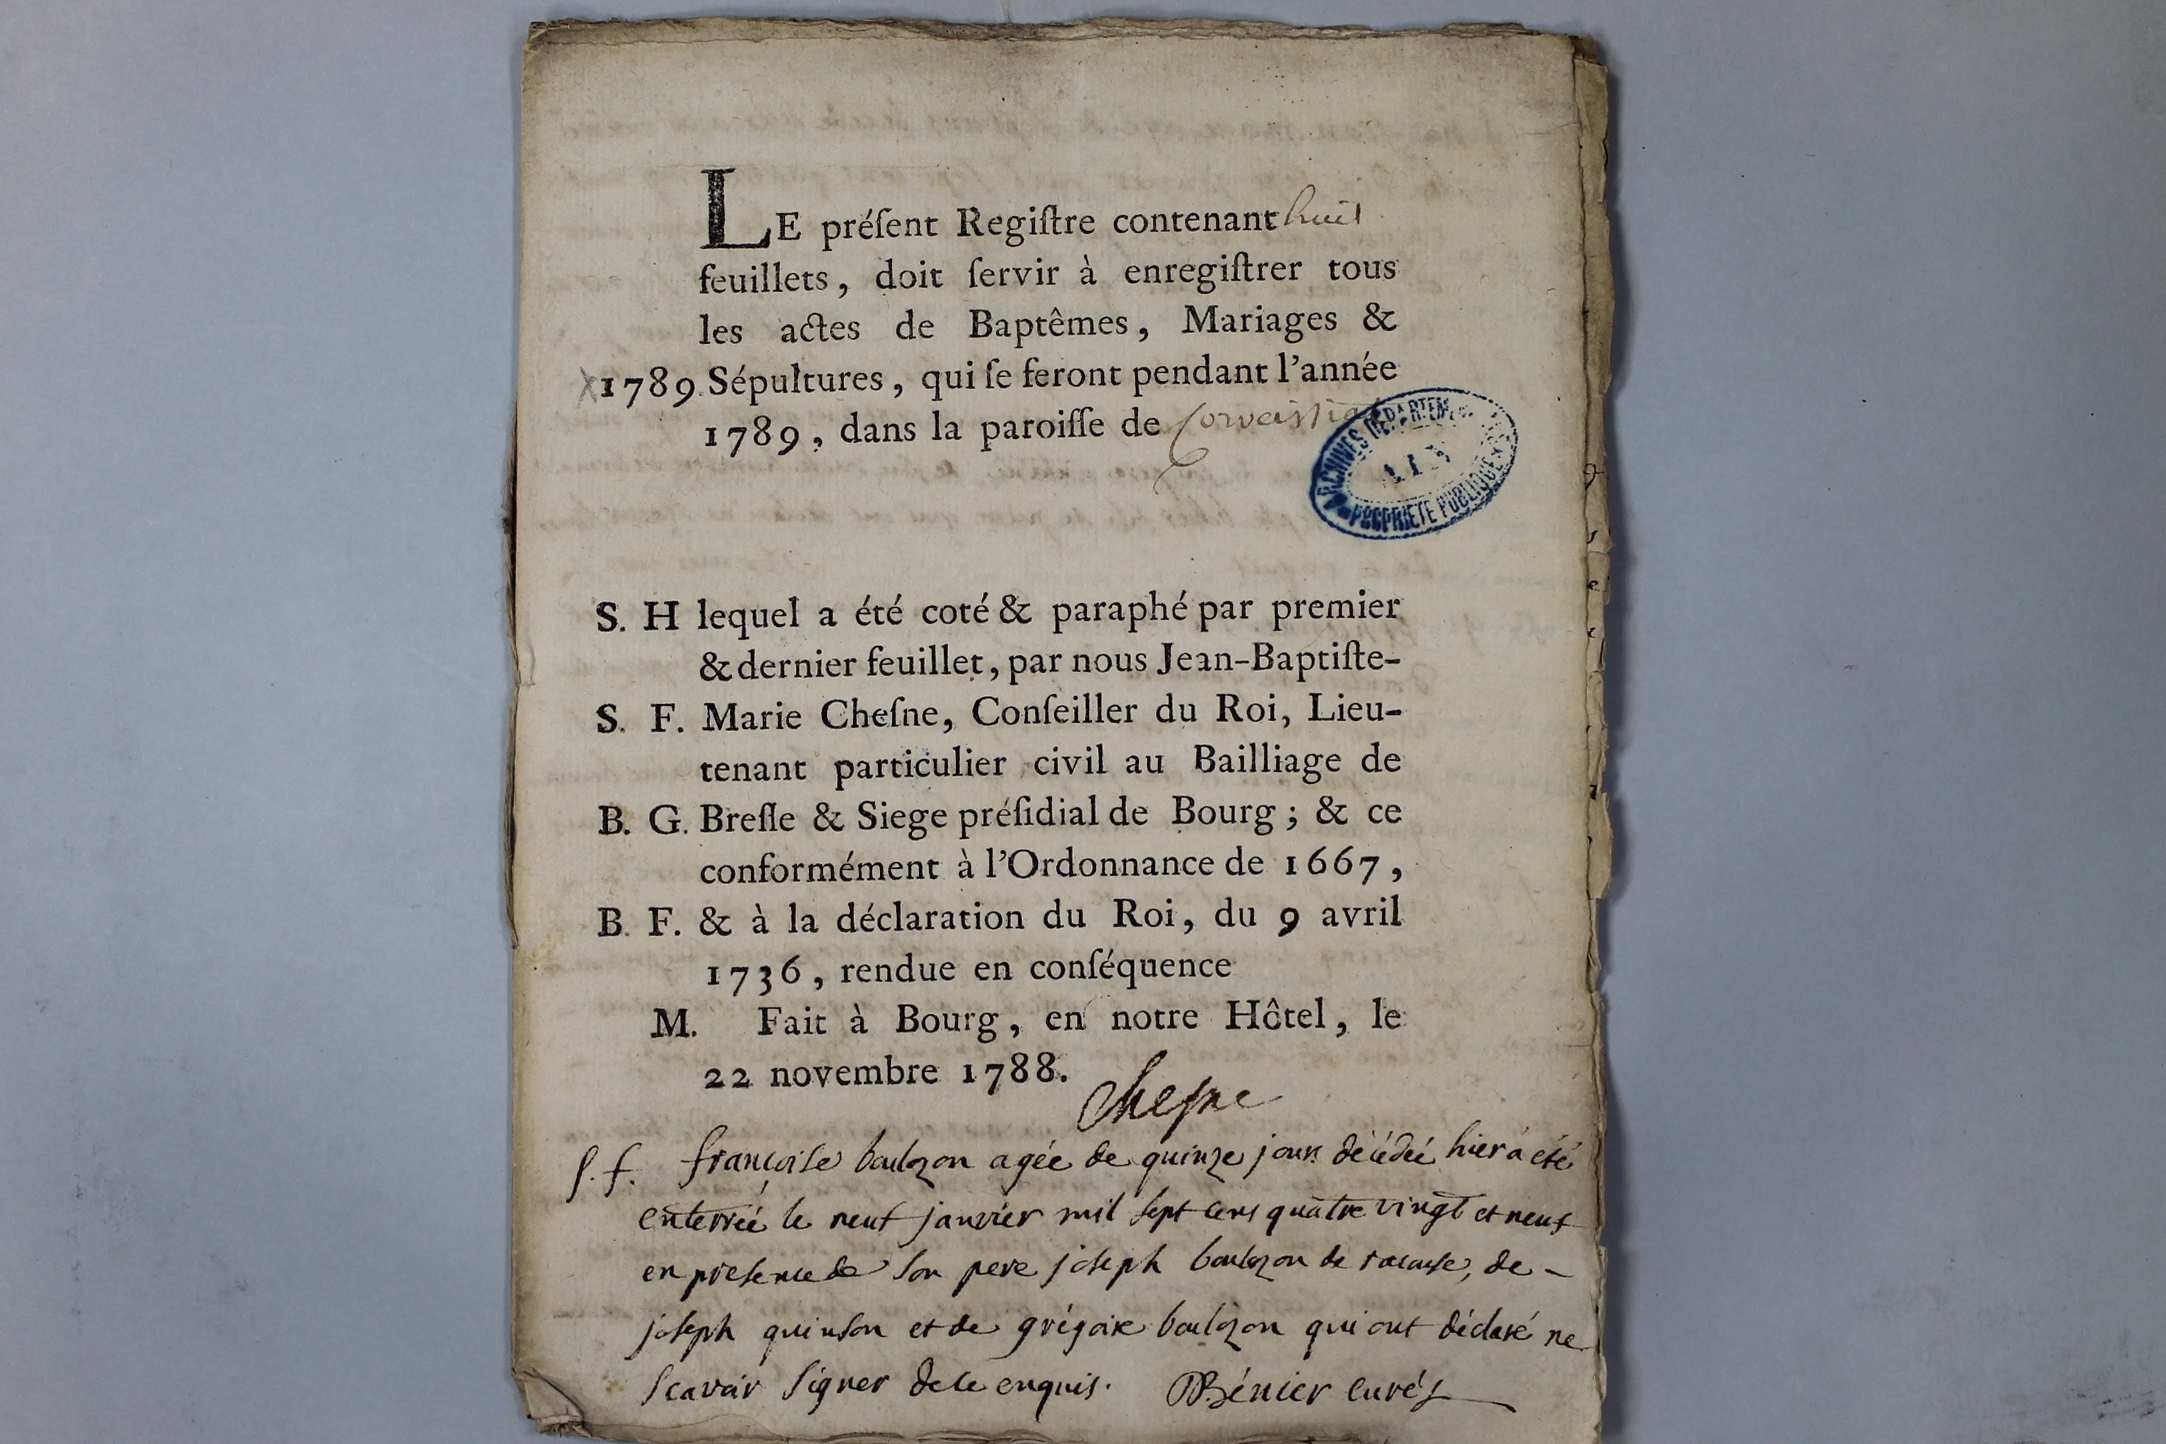 LE préſent Regiſtre contenant huit
feuillets, doit ſervir à enregiſtrer tous
les actes de Baptêmes, Mariages &
1789 Sépultures, qui ſe feront pendant l'année
1789, dans la paroiſſe de
ARCHIVES DÉPARTEM
PROPRIÉTÉ PUBLIQUE
S. H lequel a été coté & paraphé par premier
& dernier feuillet, par nous Jean-Baptiſte-
S. F. Marie Cheſne, Conſeiller du Roi, Lieu-
tenant particulier civil au Bailliage de
B. G. Breſſe & Siege préſidial de Bourg; & ce
conformément à l'Ordonnance de 1667,
B. F. & à la déclaration du Roi, du 9 avril
1736, rendue en conſéquence
M. Fait à Bourg, en notre Hôtel, le
22 novembre 1788.
Chesne
s. f. françoise boulozon agée de quinze jours décédée hier a été
enterrée le neuf janvier mil sept cens quatre vingt et neuf
en presence de son pere joseph boulozon de racouse, de -
joseph quinson et de grégoire boulozon qui ont déclaré ne
scavoir signer de ce enquis. Bénier curé